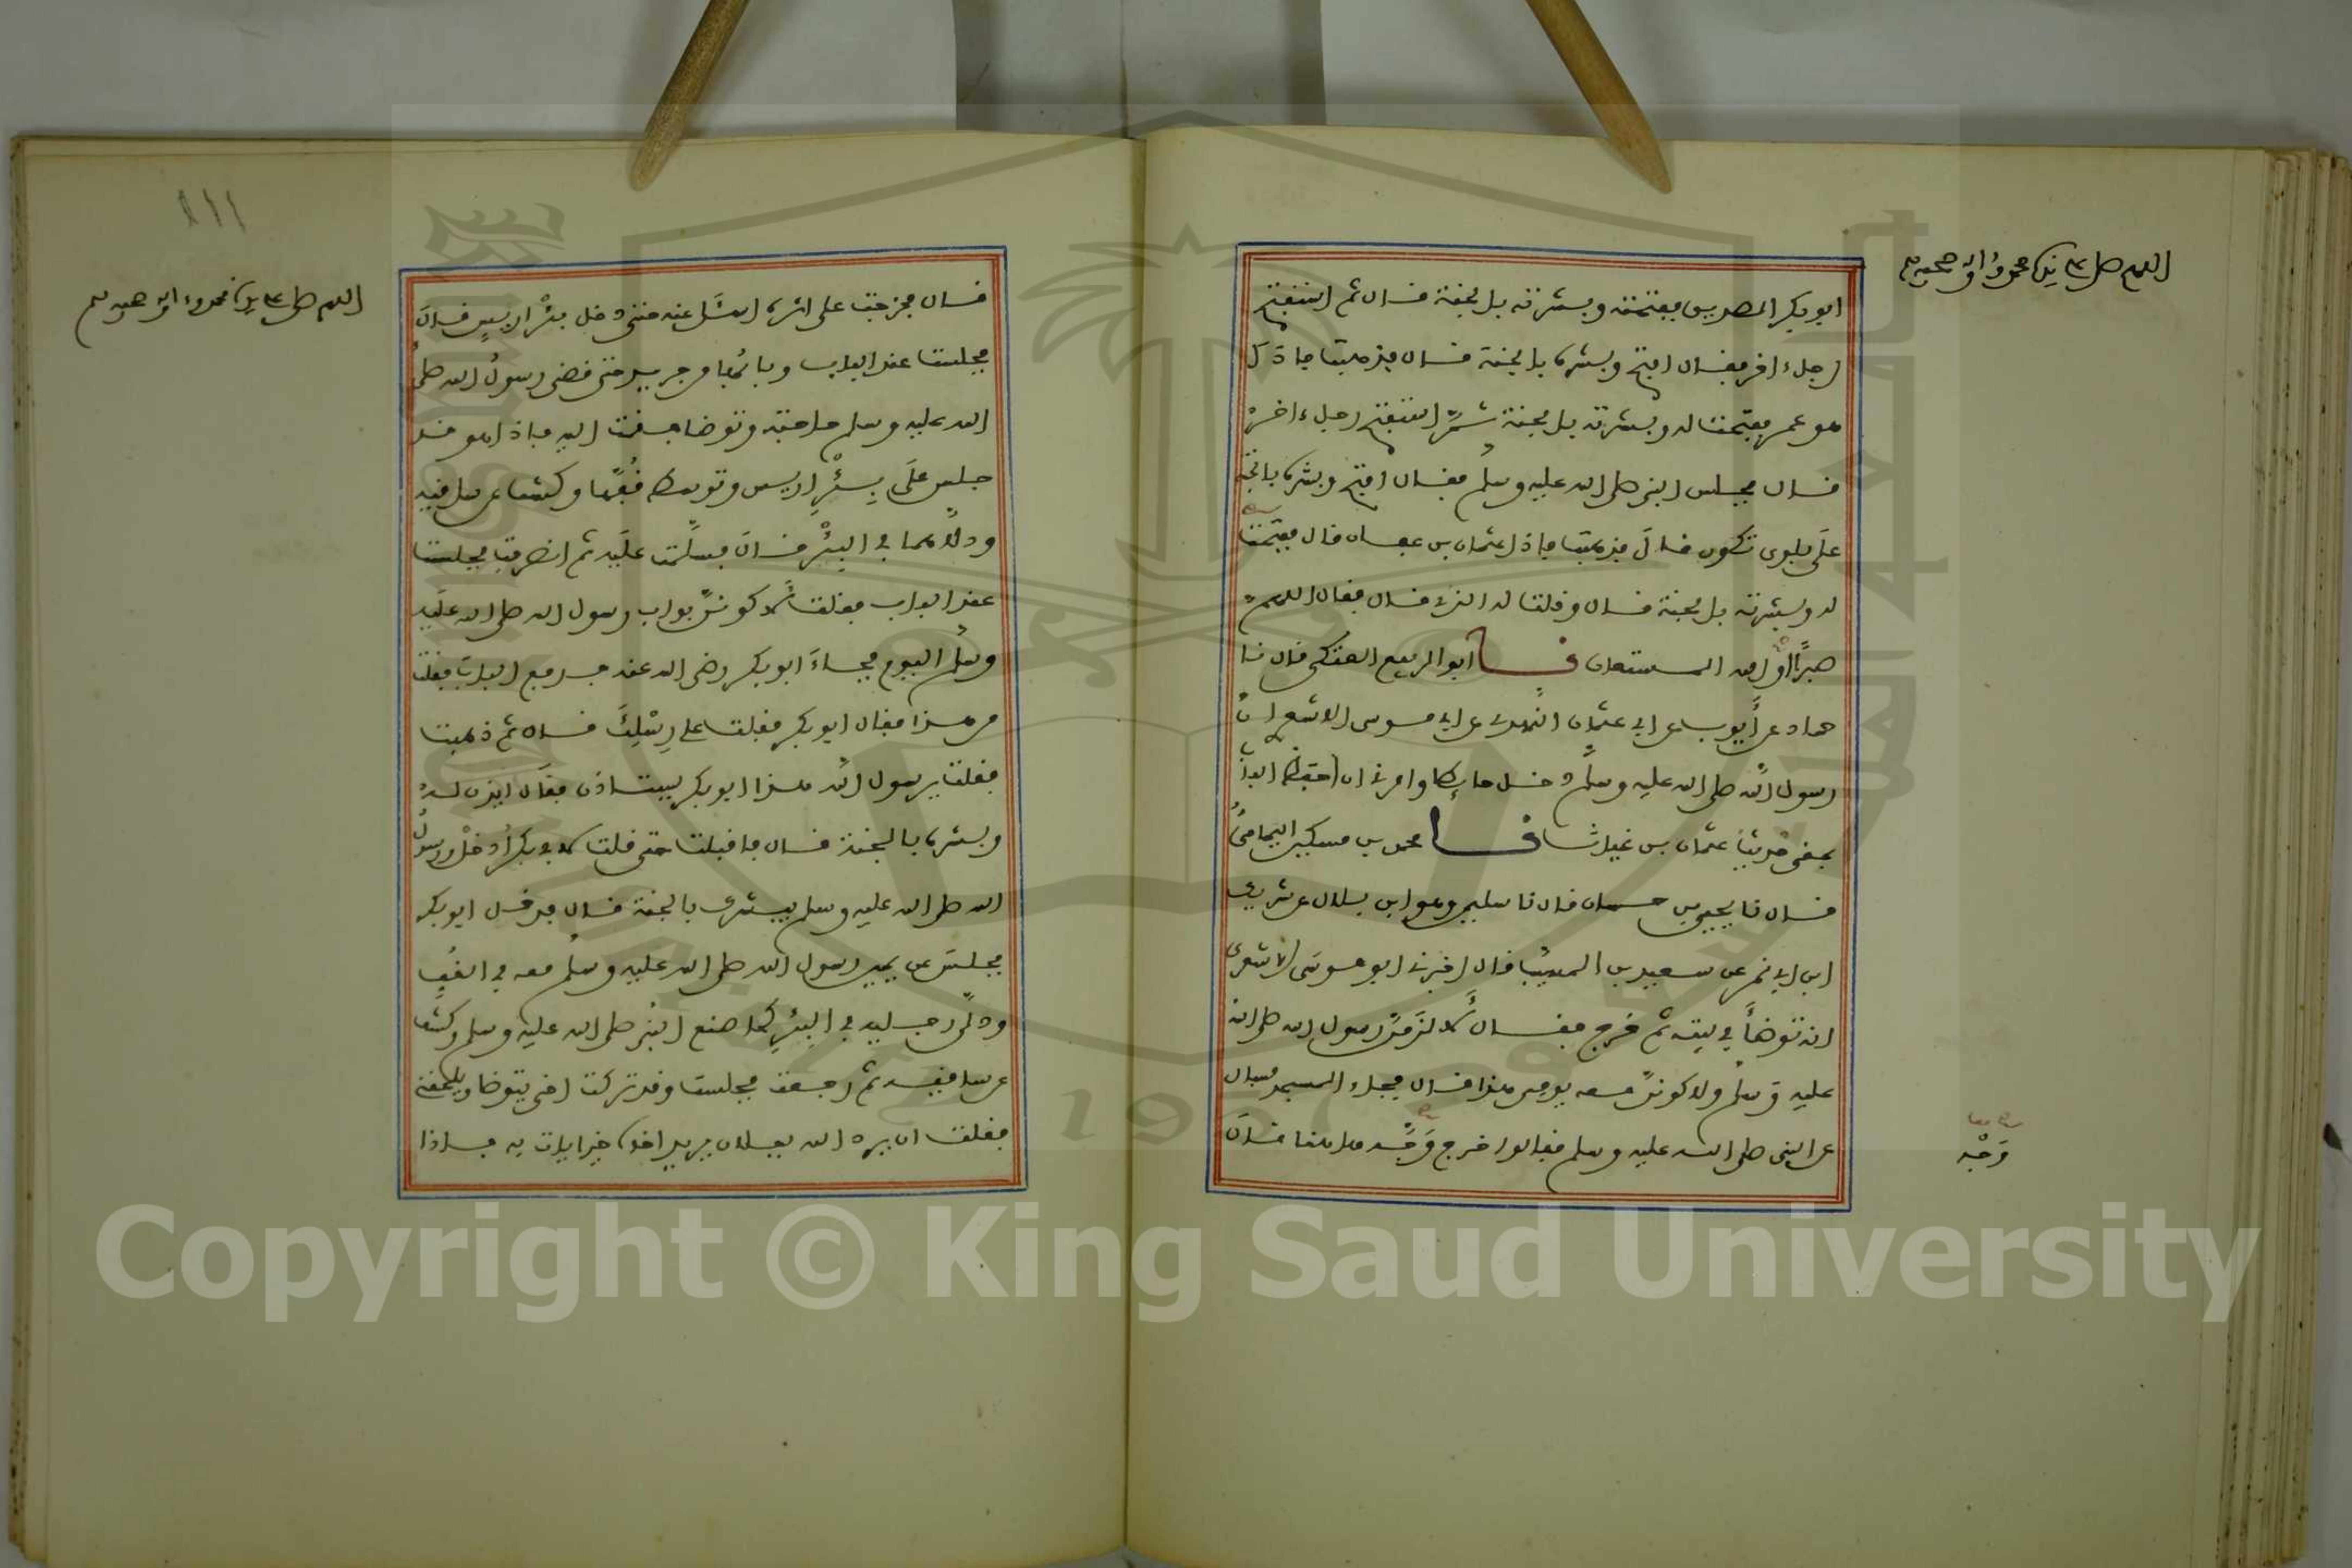 اللهم صل على سيدنا محمد وآله وصحبه
ابو بكر الصديق ففتحته وبشرته بالجنة قال ثم استفتح
رجل ءاخر فقال افتح وبشره بالجنة قال فذهبت فاذا
هو عمر ففتحت له وبشرته بالجنة ثم استفتح رجل ءاخر
قال فجلس النبي صلى الله عليه وسلم فقال افتح وبشره بالجنة
على بلوى تكون قال فذهبت فاذا عثمان بن عفان قال ففتحت
له وبشرته بالجنة قال وقلت له الذي قال فقال اللهم
صبرًا او الله المستعان نا ابو الربيع العتكي قال نا
حماد عن أيوب عن ابي عثمان النهدي عن ابي موسى الاشعري ان
رسول الله صلى الله عليه وسلم دخل حايطا وامرني ان احفظ الباب
بمعنى حديث عثمان بن غياث نا محمد بن مسكين اليمامي
قال نا يحيى بن حسان قال نا سليمن وهو ابن بلال عن شريك
ابن ابي نمر عن سعيد بن المسيب قال اخبرني ابو موسى الاشعري
انه توضأ في بيته ثم خرج فقال لالزمن رسول الله صلى الله
عليه وسلم ولاكونن معه يومي هذا قال فجاء المسجد فسال
عن النبي صلى الله عليه وسلم فقالوا خرج وجه هاهنا قال
وجه
١١١
اللهم صل على سيدنا محمد وءاله وصحبه وسلم
قال فخرجت على اثره اسئل عنه حتى دخل بئر اريس قال
فجلست عند الباب وبابها من جريد حتى قضى رسول الله صلى
الله عليه وسلم حاجته وتوضا فقمت اليه فاذا هو قد
جلس على بئر اريس وتوسط قفها وكشف عن ساقيه
ودلاهما في البئر قال فسلمت عليه ثم انصرفت فجلست
عند الباب فقلت لاكونن بواب رسول الله صلى الله عليه
وسلم اليوم فجاء ابو بكر رضي الله عنه فدفع الباب فقلت
من هذا فقال ابو بكر فقلت على رسلك قال ثم ذهبت
فقلت يرسول الله هذا ابو بكر يستاذن فقال ايذن له
وبشره بالجنة قال فاقبلت حتى قلت لابي بكر ادخل ورسول
الله صلى الله عليه وسلم يبشرك بالجنة قال فدخل ابو بكر
فجلس عن يمين رسول الله صلى الله عليه وسلم معه في القف
ودلى رجليه في البئر كما صنع النبي صلى الله عليه وسلم وكشف
عن ساقيه ثم رجعت فجلست وقد تركت اخي يتوضا ويلحقني
فقلت ان يرد الله بفلان يريد اخاه خيرا يات به فاذا
Copyright © King Saud University